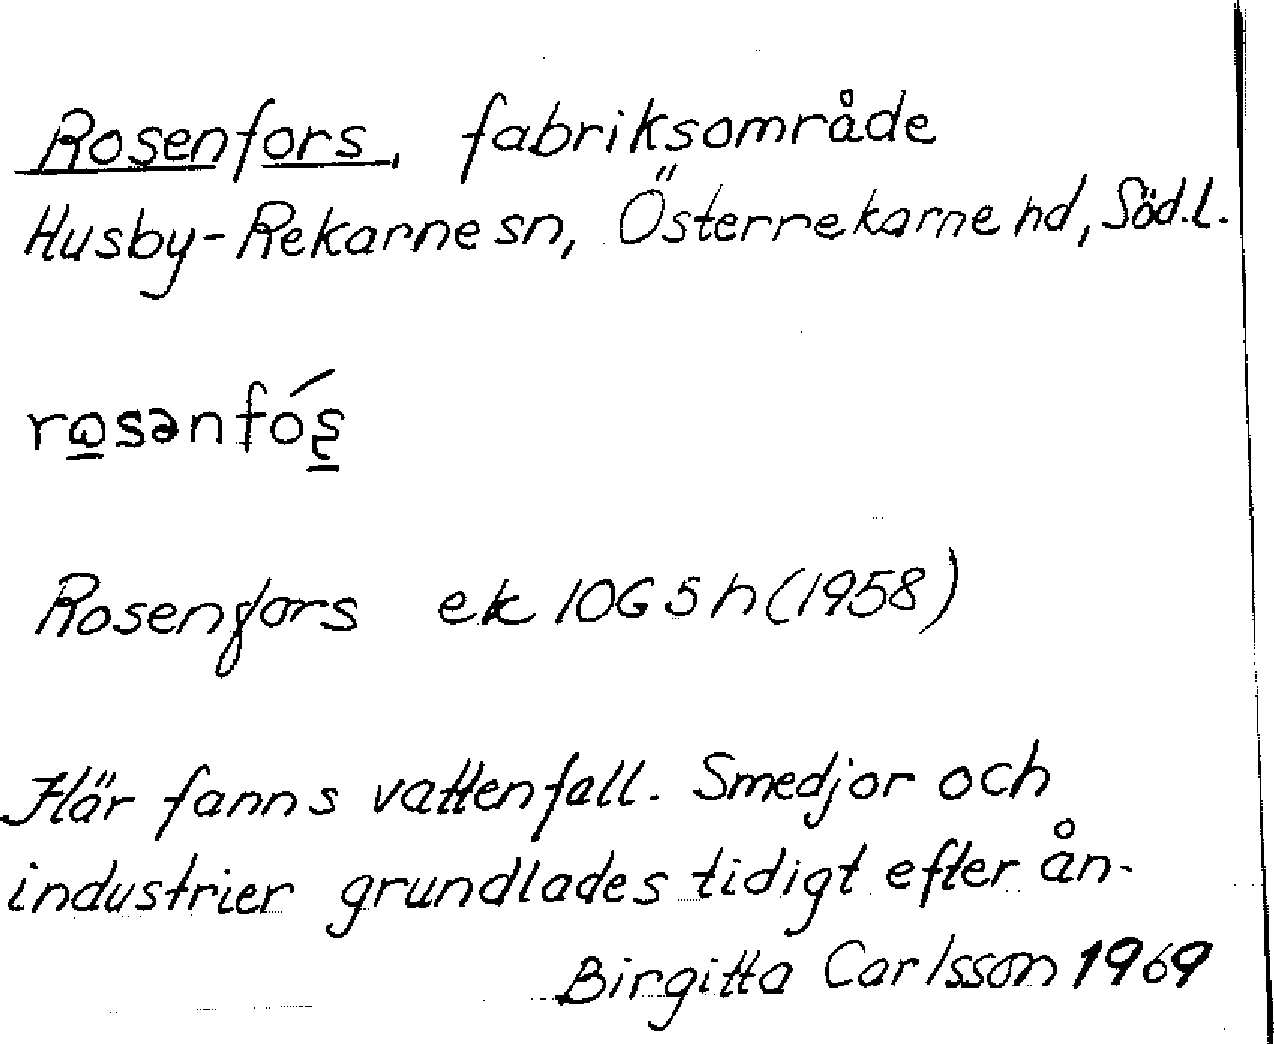 Rosenfors, fabriksområde
Husby-Rekarne sn, Österrekarne hd, Söd.l.
rωsənfóʂ
Rosenfors ek 10G5h (1958)
Här fanns vattenfall. Smedjor och
industrier grundlades tidigt efter ån.
Birgitta Carlsson 1969